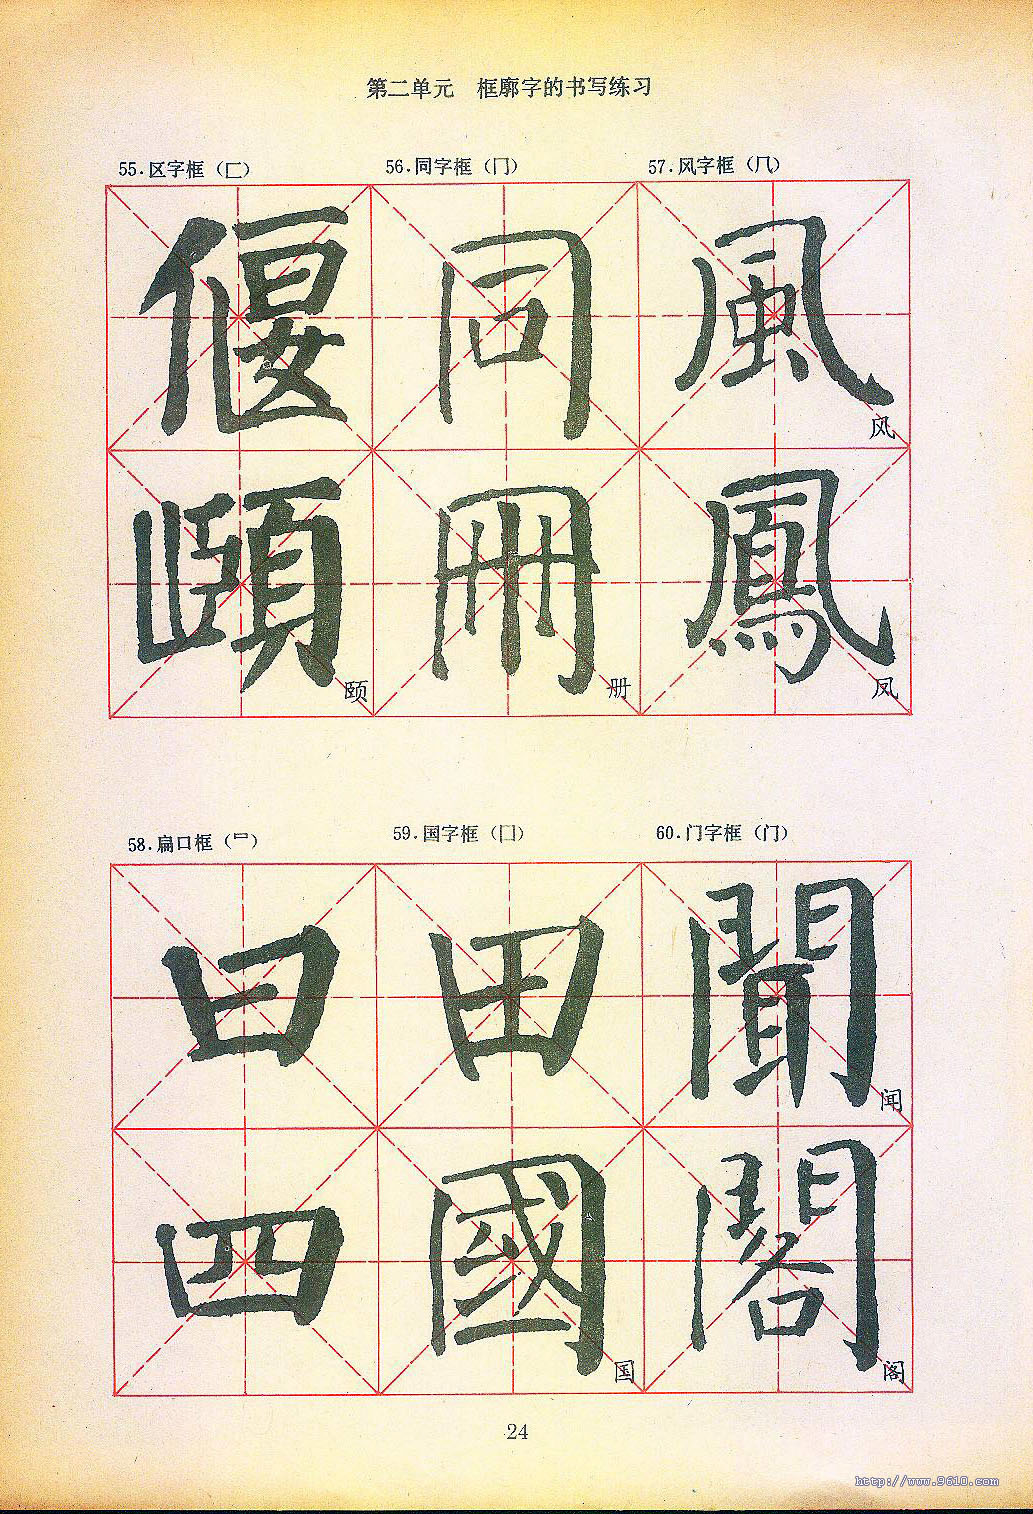 第二单元 框廓字的书写练习
55.区字框（匚） 56.同字框（冂） 57.风字框（⺇）
偃 同 風
风
頤 冊 鳳
颐 册 凤
58.扁口框（罒） 59.国字框（囗） 60.门字框（门）
曰 田 聞
闻
四 國 閣
国 阁
24
http://www.9610.com